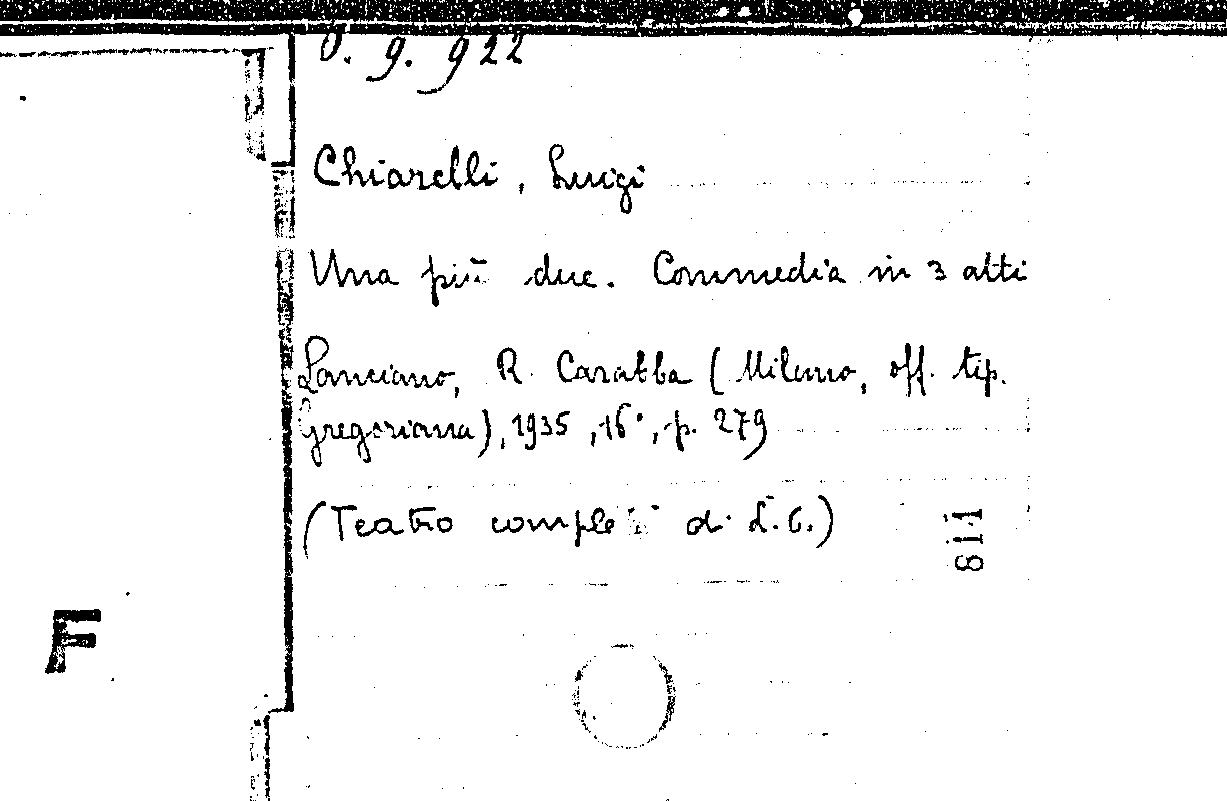 9. 922
Chiarelli, Luigi
Una più due. Commedia in 3 atti
Lanciano, R. Carabba (Milano, off. tip.
Gregoriana), 1935, 16°, p. 279
(Teatro di L.C.)
611
F